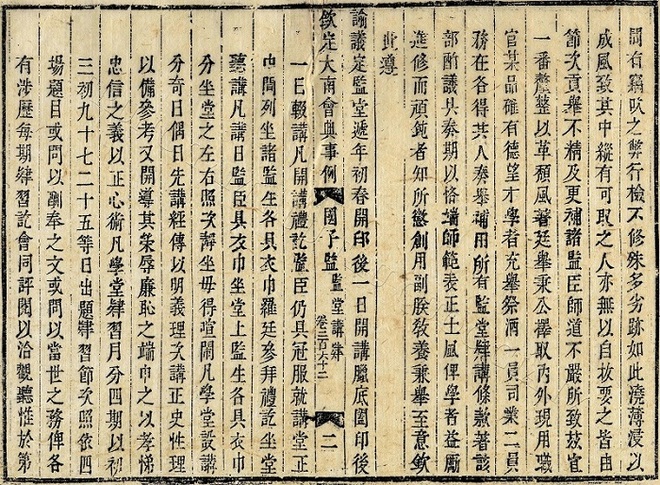 間有竊吹之弊行檢不修殊多劣跡如此澆薄浸以
成風致其中縱有可取之人亦無以自拔要之皆由
節次貢舉不精及更補諸監臣師道不嚴所致茲宜
一番釐整以革頹風著廷舉秉公擇取內外現用職
官某品確有德望才學者充舉祭酒一員司業二員
務在各得其人奏舉補用所有監堂肄講條款著該
部酌議具奏期以恪師範表正士風俾學者益勵
進修而頑鈍者知所懲創用副朕敎養秉舉至意欽
此遵
諭議定監堂遞年初春開印後一日開講臘底閤印後
欽定大南會典事例 國子監監堂講肄 卷二百六十二 二
一日輟講凡開講禮訖監臣仍具冠服就講堂正
中間列坐諸監生各具衣巾羅廷參拜禮訖坐堂
聽講凡講日監臣具衣巾坐堂上監生各具衣巾
分坐堂之左右照次靜坐毋得喧鬧凡學堂設講
分奇日偶日先講經傳以明義理次講正史性理
以備參考又開導其榮辱廉恥之端申之以孝悌
忠信之義以正心術凡學堂肄習月分四期以初
三初九十七二十五等日出題肄習節次照依四
場題目或問以制奉之文或問以當世之務俾各
有涉歷每期肄習訖會同評閱以洽觀聽惟於第